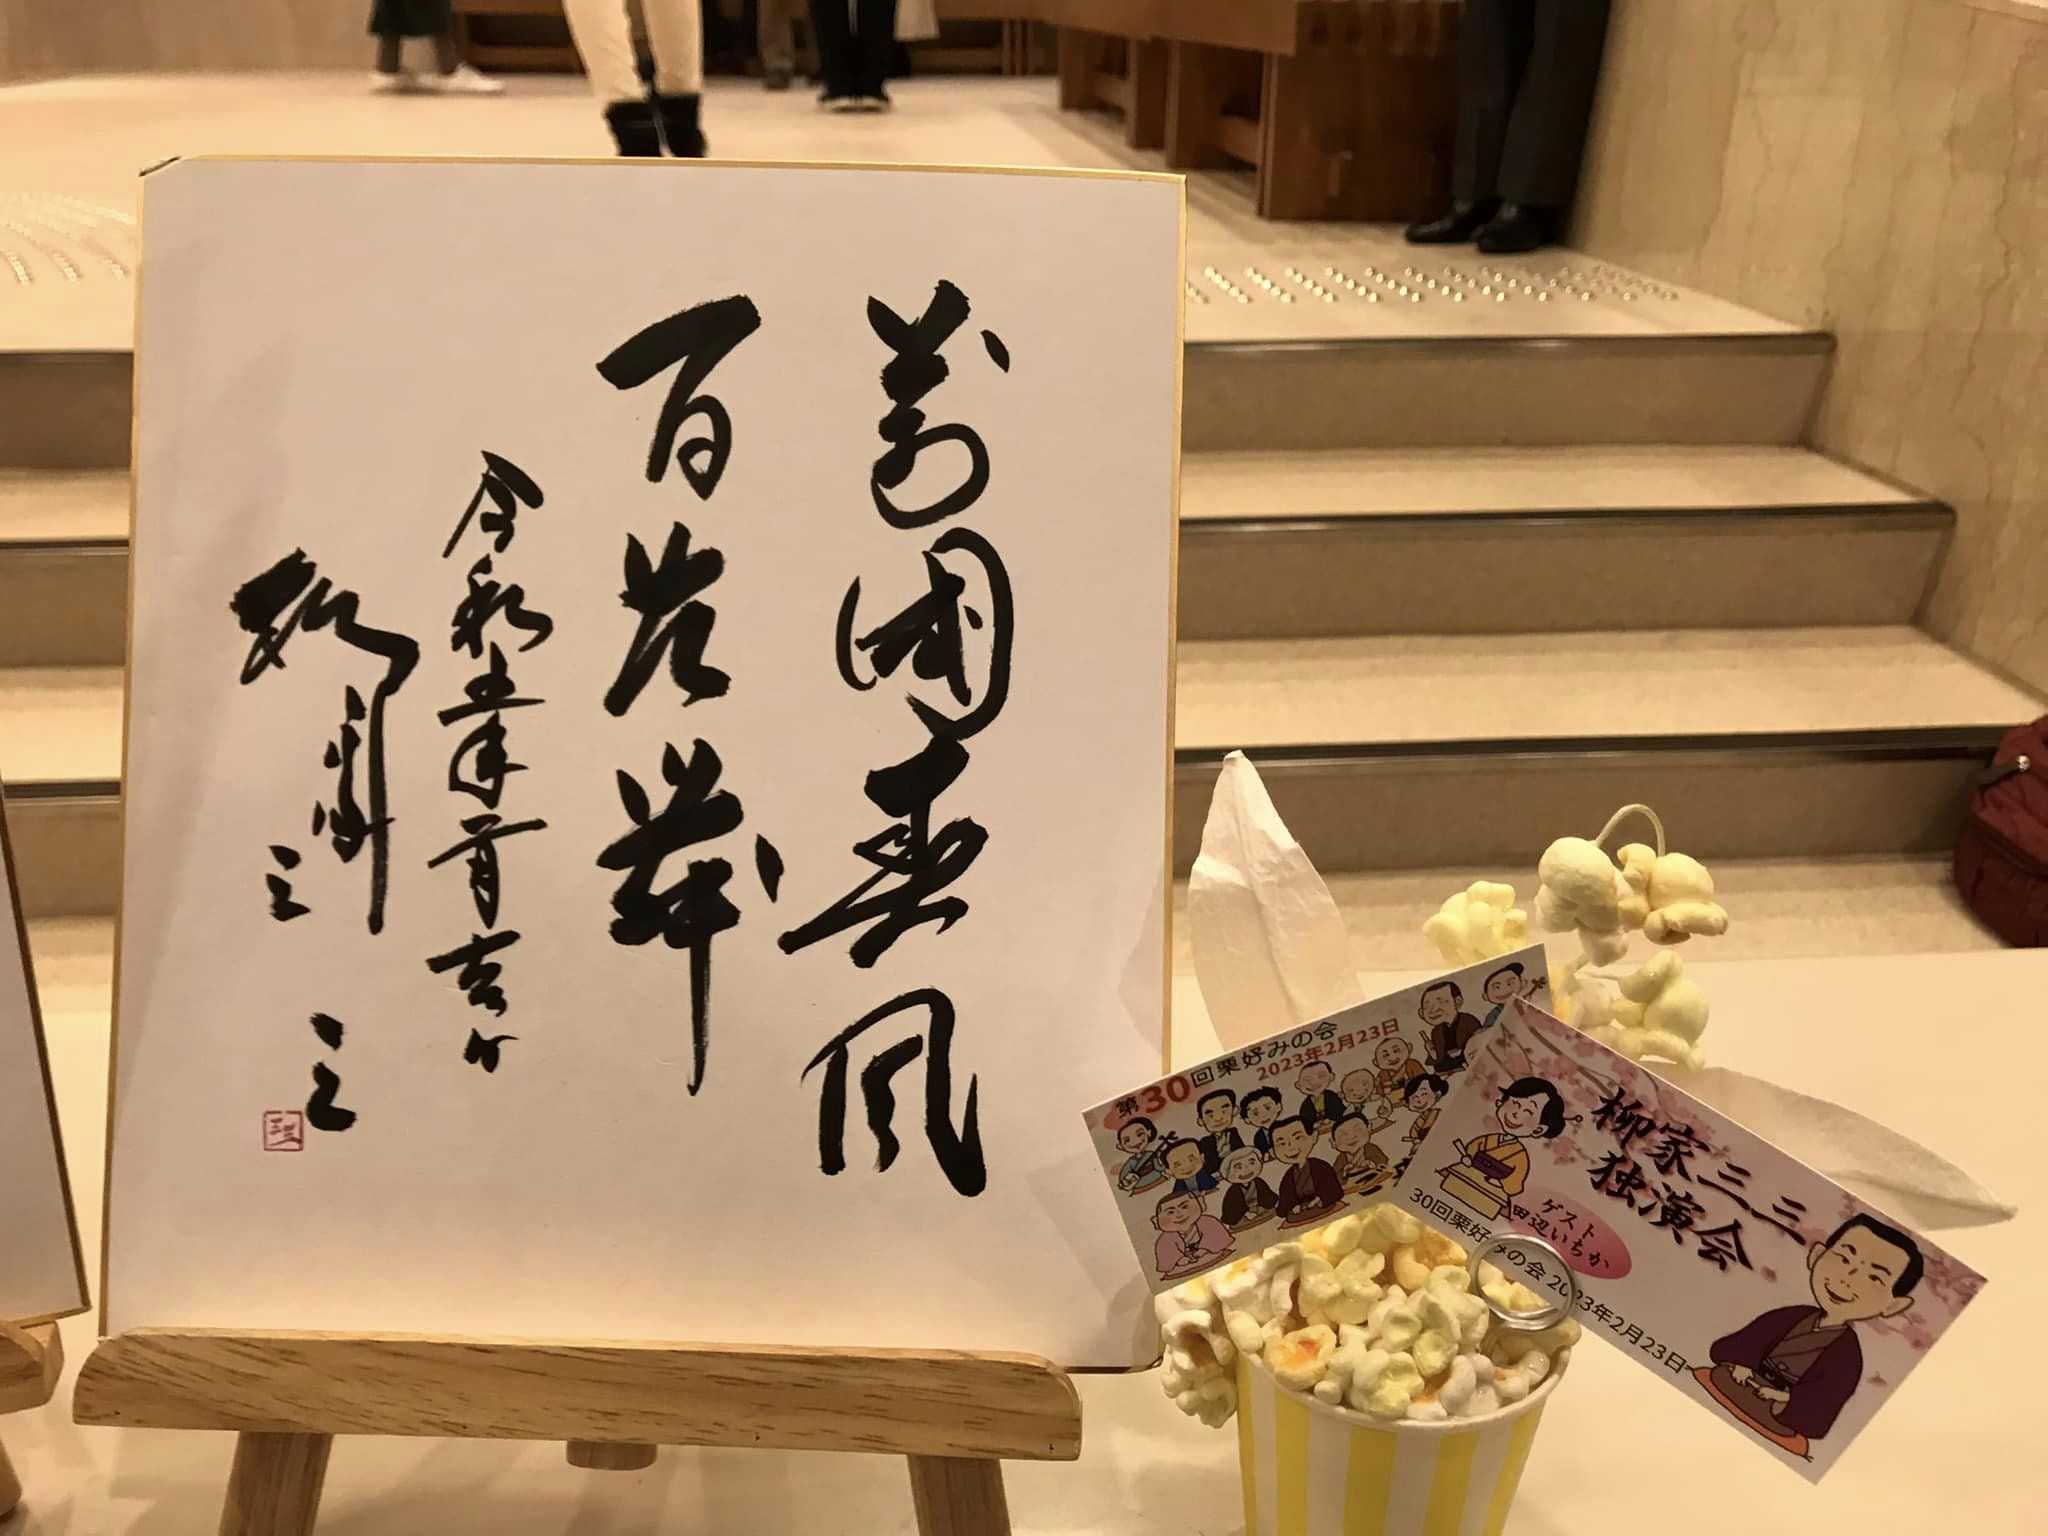 萬國春風
百花舞
令和五年二月吉日
柳家三三
三三
第30回栗好みの会
2023年2月23日
柳家三三
独演会
ゲスト
田辺いちか
30回栗好みの会 2023年2月23日